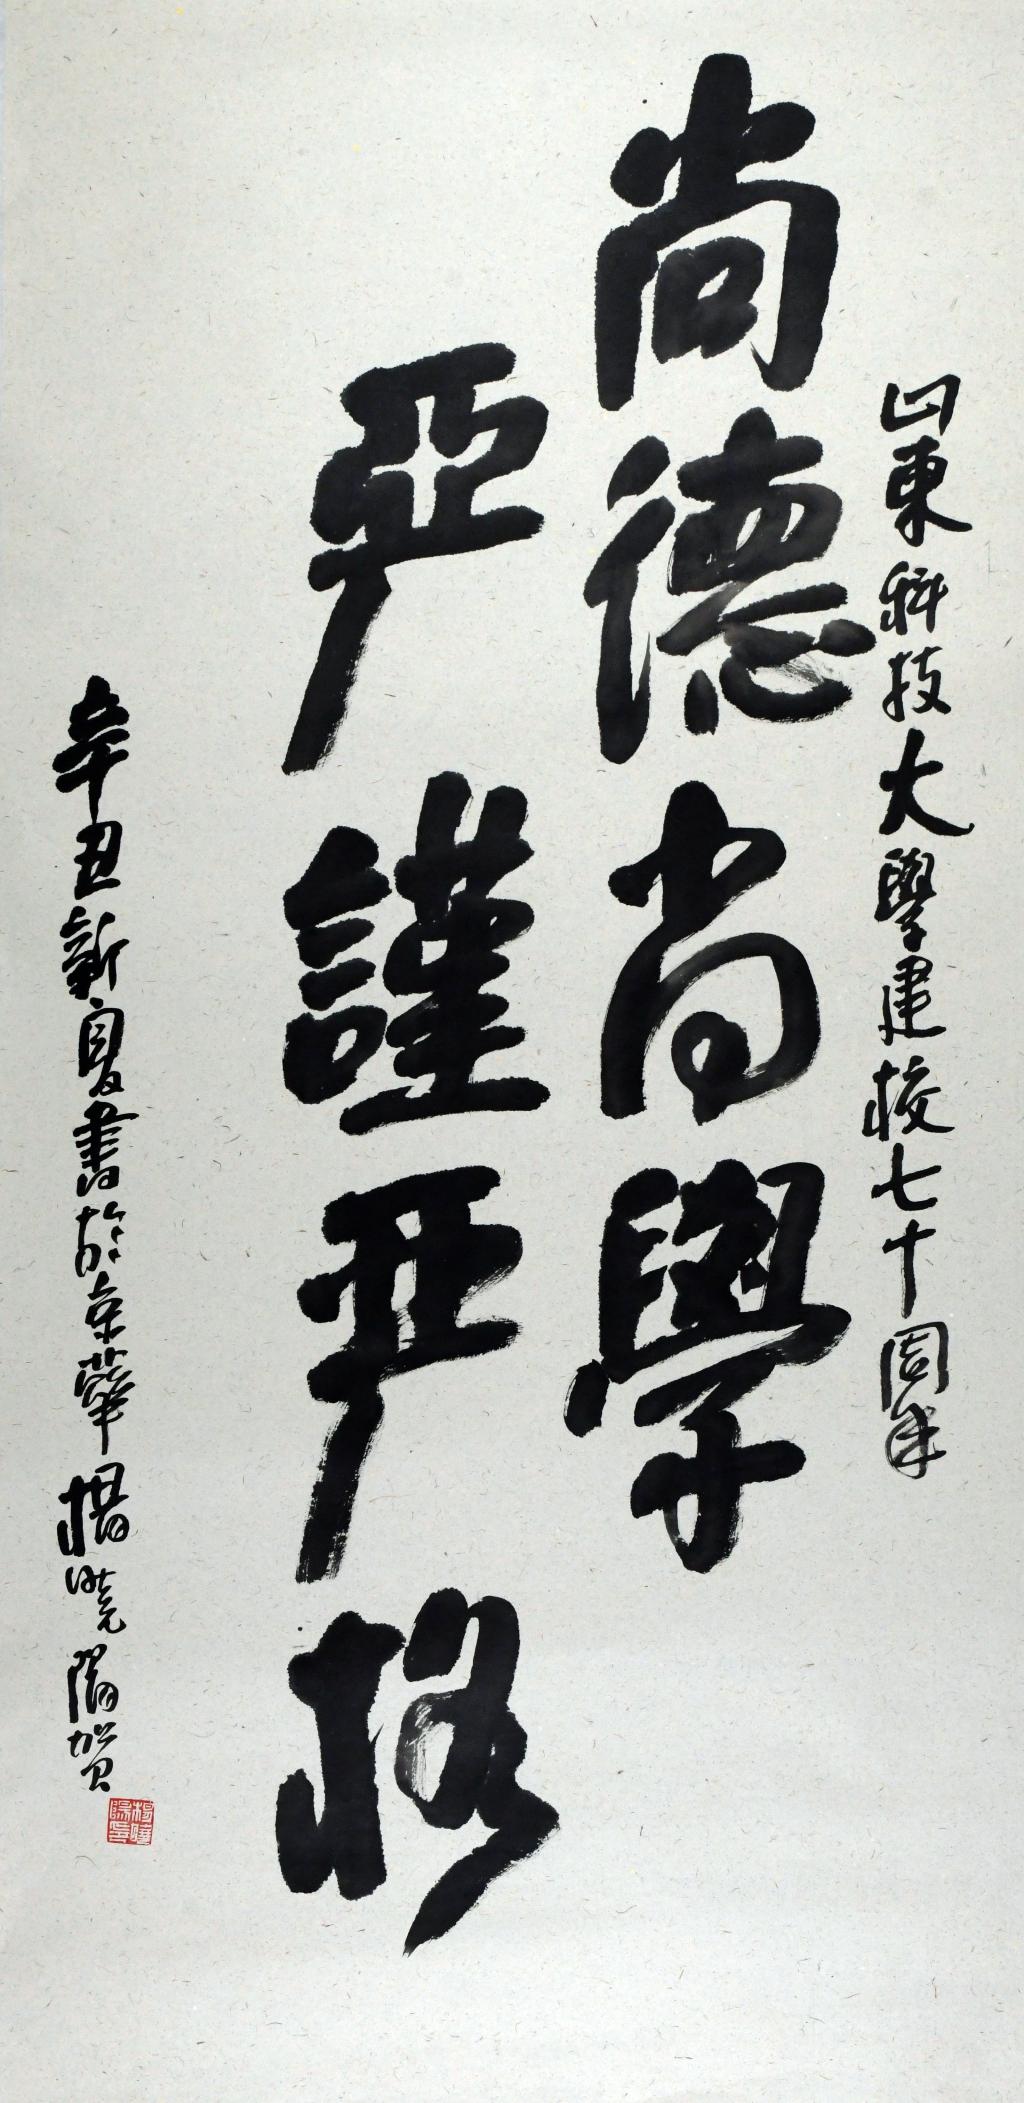 山東科技大學建校七十周年
尚德尚學
严謹严格
辛丑新夏書於京華楊晓陽賀
楊曉陽印